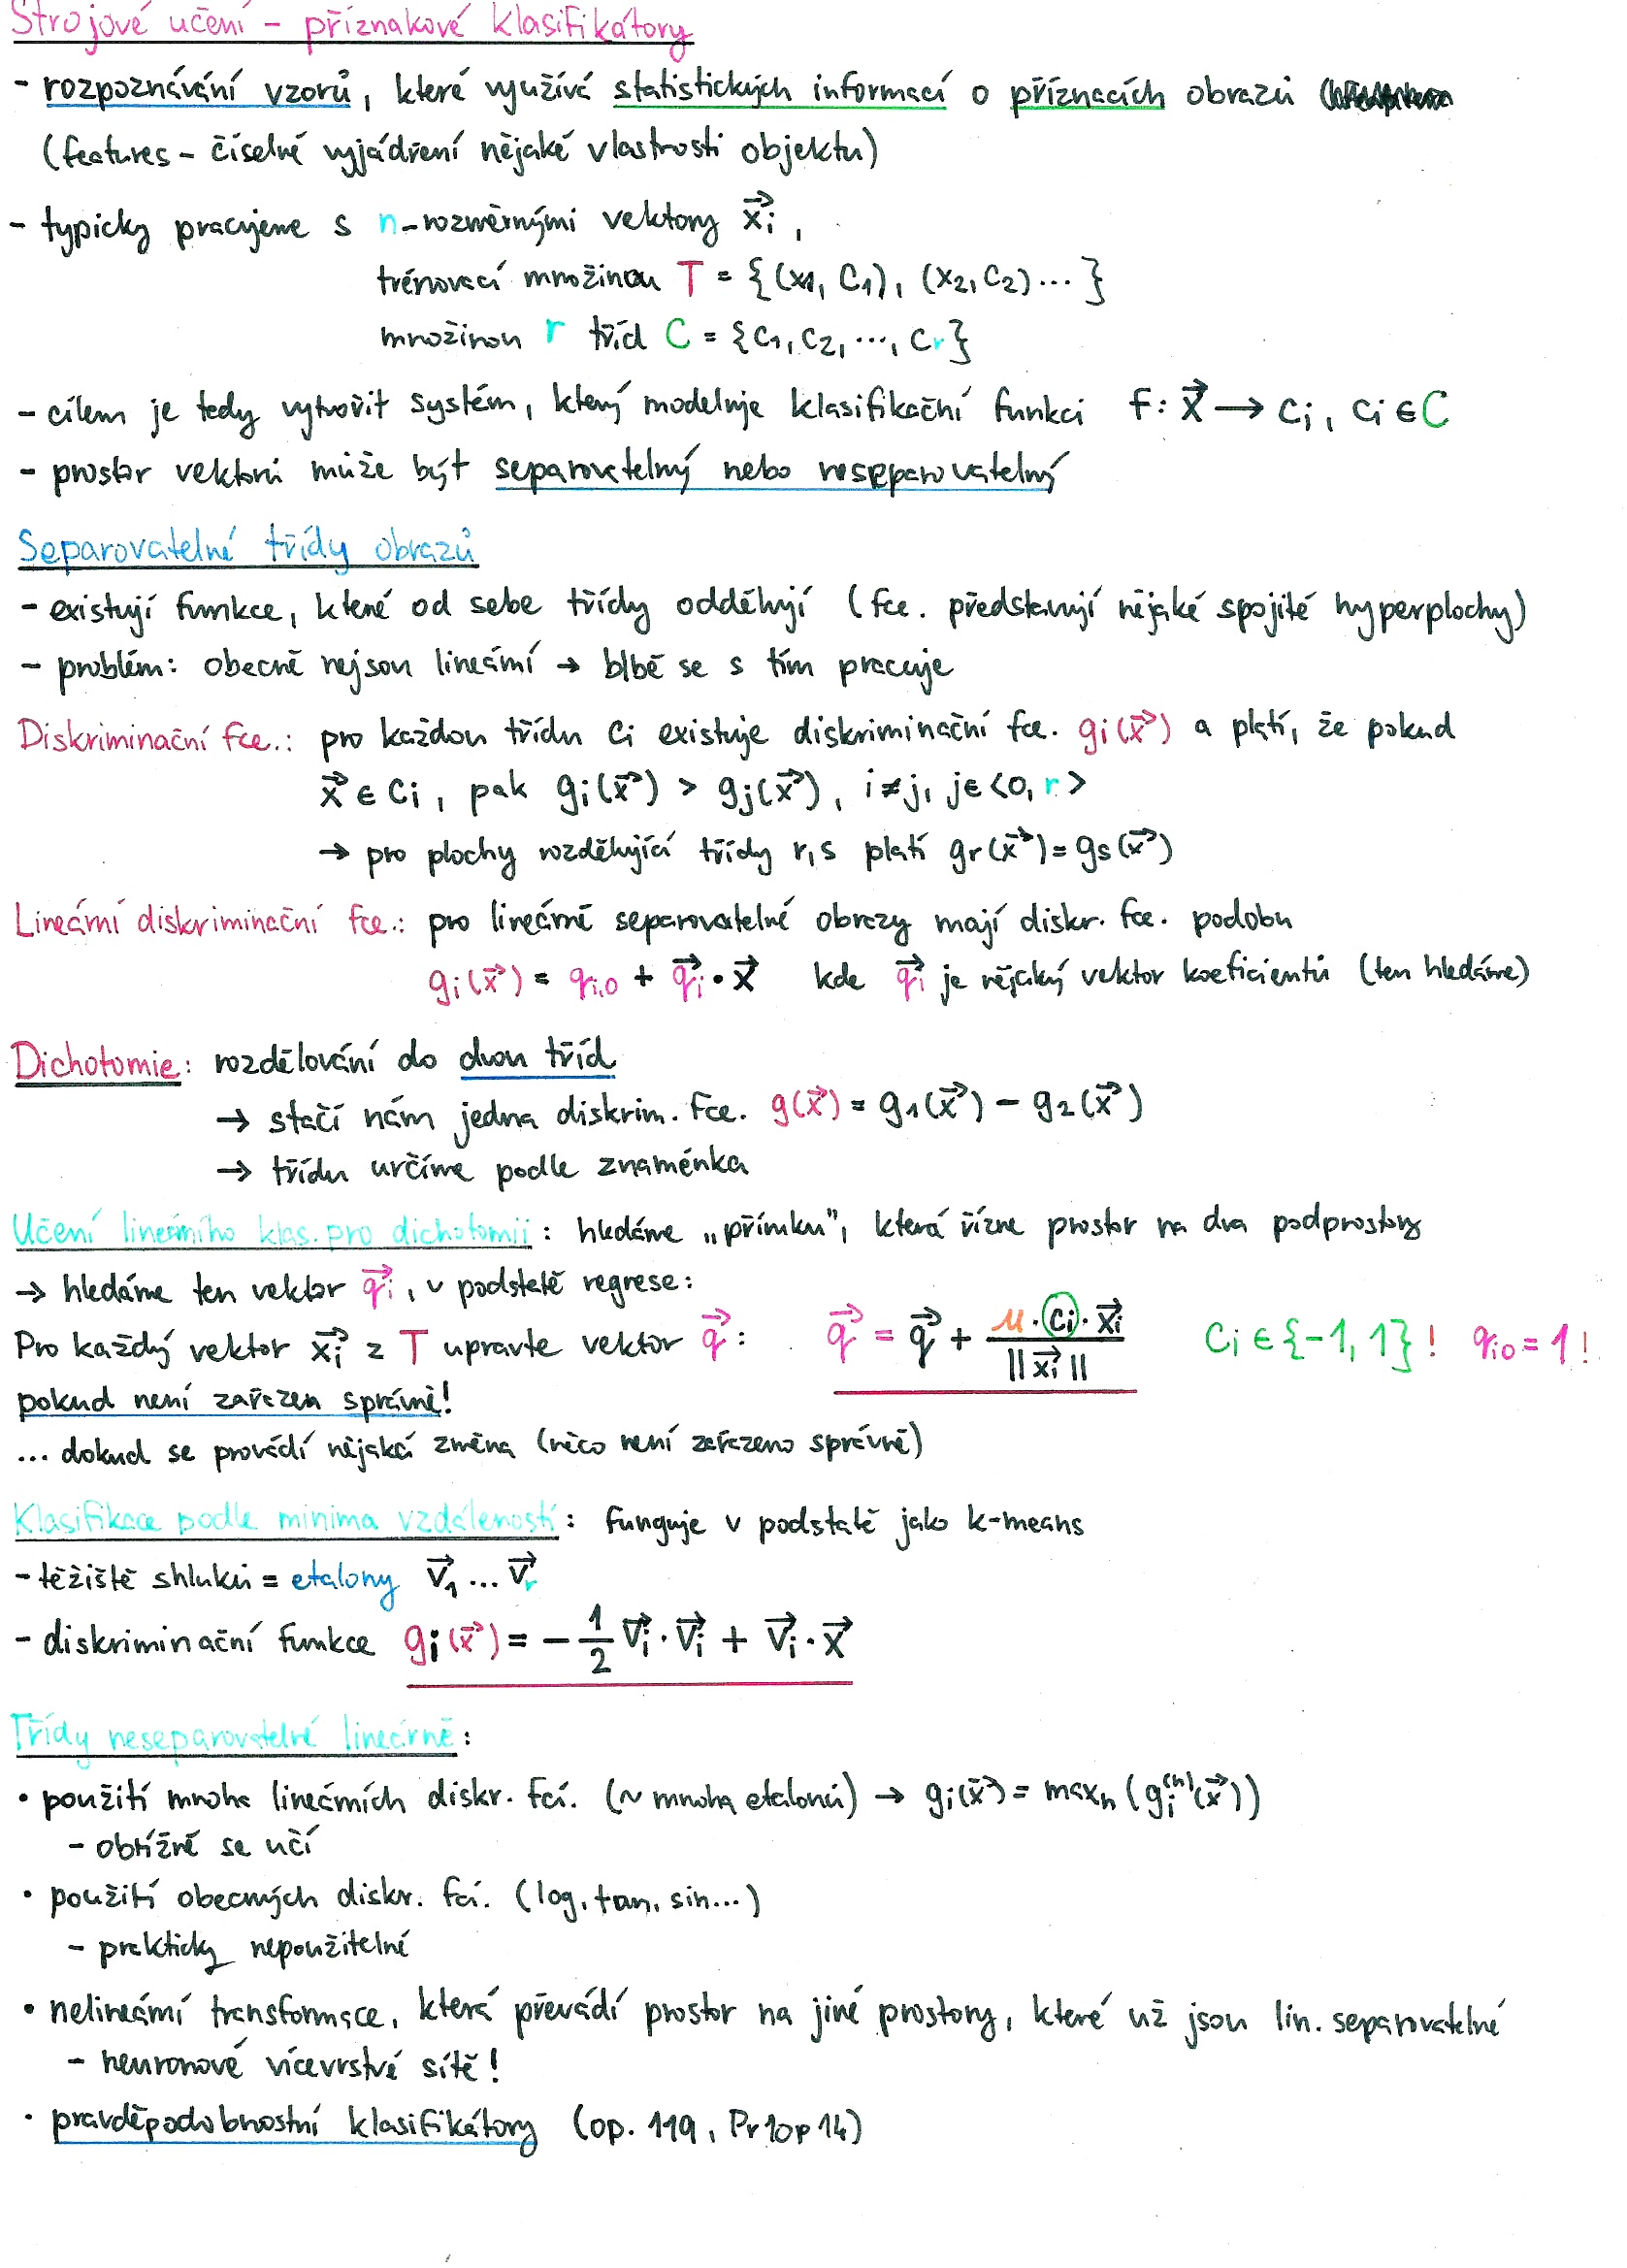 Strojové učení – příznakové klasifikátory
- rozpoznávání vzorů, které využívá statistických informací o příznacích obrazů
(features – číselné vyjádření nějaké vlastnosti objektu)
- typicky pracujeme s n-rozměrnými vektory x⃗i,
trénovací množinou T = {(x1, C1), (x2, C2)... }
množinou r tříd C = {C1, C2, ..., Cr}
- cílem je tedy vytvořit systém, který modeluje klasifikační funkci f: x⃗ → ci, ci ∈ C
- prostor vektorů může být separovatelný nebo neseparovatelný
Separovatelné třídy obrazů
- existují funkce, které od sebe třídy oddělují (fce. představují nějaké spojité hyperplochy)
- problém: obecně nejsou lineární → blbě se s tím pracuje
Diskriminační fce.: pro každou třídu Ci existuje diskriminační fce. gi(x⃗) a platí, že pokud
x⃗ ∈ Ci, pak gi(x⃗) > gj(x⃗), i≠j, j∈<0, r>
→ pro plochy rozdělující třídy r,s platí gr(x⃗) = gs(x⃗)
Lineární diskriminační fce.: pro lineárně separovatelné obrazy mají diskr. fce. podobu
gi(x⃗) = qi,0 + q⃗i · x⃗ kde q⃗i je nějaký vektor koeficientů (ten hledáme)
Dichotomie: rozdělování do dvou tříd
→ stačí nám jedna diskrim. fce. g(x⃗) = g1(x⃗) – g2(x⃗)
→ třídu určíme podle znaménka
Učení lineárního klas. pro dichotomii: hledáme „přímku", která řízne prostor na dva podprostory
→ hledáme ten vektor q⃗i, v podstatě regrese:
Pro každý vektor x⃗i z T upravte vektor q⃗: q⃗ = q⃗ + μ · ci · x⃗i / ||x⃗i|| Ci ∈ {-1, 1}! qi0 = 1!
pokud není zařazen správně!
... dokud se provádí nějaká změna (něco není zařazeno správně)
Klasifikace podle minima vzdálenosti: funguje v podstatě jako k-means
- těžiště shluků = etalony v⃗1 ... v⃗r
- diskriminační funkce gi(x⃗) = – 1/2 v⃗i · v⃗i + v⃗i · x⃗
Třídy neseparovatelné lineárně:
• použití mnoha lineárních diskr. fcí. (~ mnoha etalonů) → gi(x⃗) = maxn (gi(n)(x⃗))
- obtížně se učí
• použití obecných diskr. fcí. (log, tan, sin...)
- prakticky nepoužitelné
• nelineární transformace, která převádí prostor na jiné prostory, které už jsou lin. separovatelné
- neuronové vícevrstvé sítě!
• pravděpodobnostní klasifikátory (op. 119, Pr10p14)